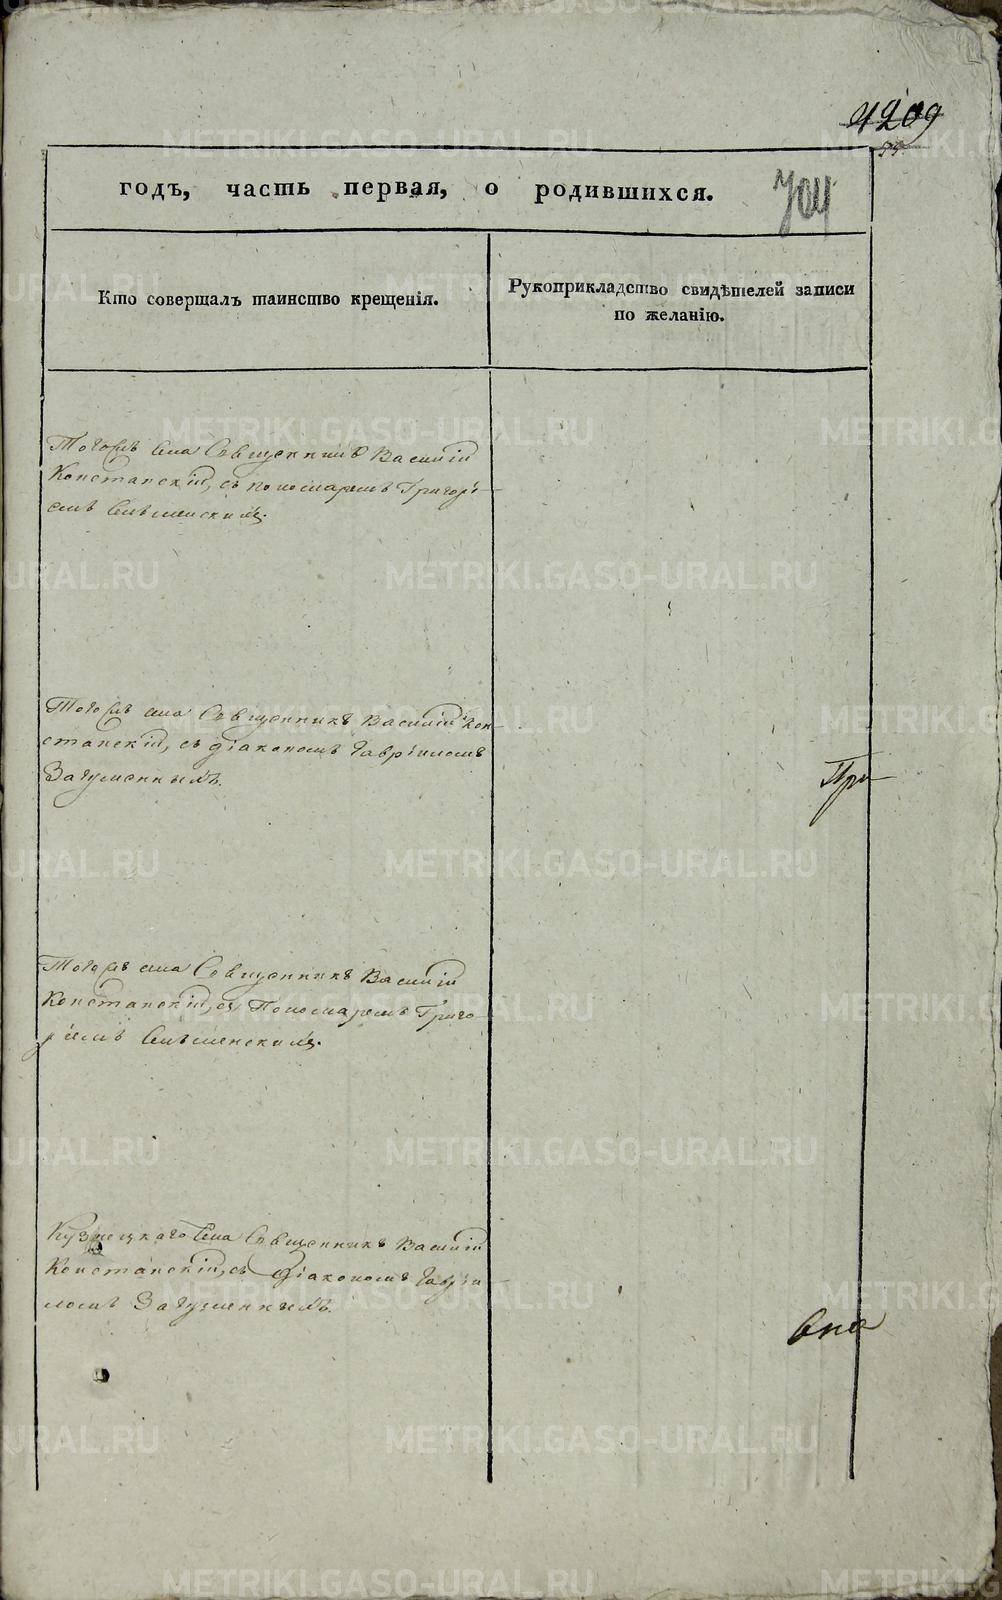 4209
55.
годъ, часть первая, о родившихся.
704
Кто совершалъ таинство крещенія.
Рукоприкладство свидѣтелей записи
по желанію.
Тогожъ села Священникъ Василій
Констанскій, съ пономаремъ Григорі-
емъ Словенскимъ.
Тогожъ села Священникъ Василій Кон-
станскій, съ діакономъ Гавріиломъ
Загуменнымъ.
При
Тогожъ села Священникъ Василій
Констанскій, съ Пономаремъ Григо-
ріемъ
Кузнецкаго Села Священникъ Василій
Констанскій, съ Діакономъ Гавріи-
ломъ Загуменнымъ.
METRIKI.GASO-URAL.RU